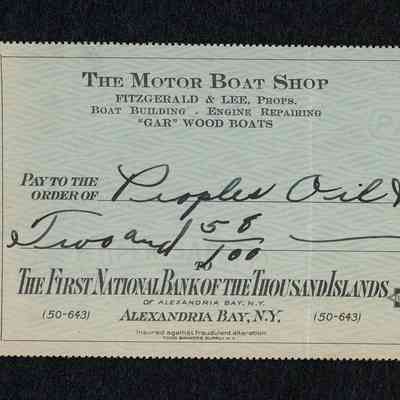 THE MOTOR BOAT SHOP
FITZGERALD & LEE, PROPS.
BOAT BUILDING - ENGINE REPAIRING
"GAR" WOOD BOATS
PAY TO THE
ORDER OF Peoples Oil
Two and 58/100
TO
THE FIRST NATIONAL BANK OF THE THOUSAND ISLANDS
OF ALEXANDRIA BAY, N.Y.
(50-643) ALEXANDRIA BAY, N.Y. (50-643)
Insured against fraudulent alteration
TODD BANKERS SUPPLY N.Y.